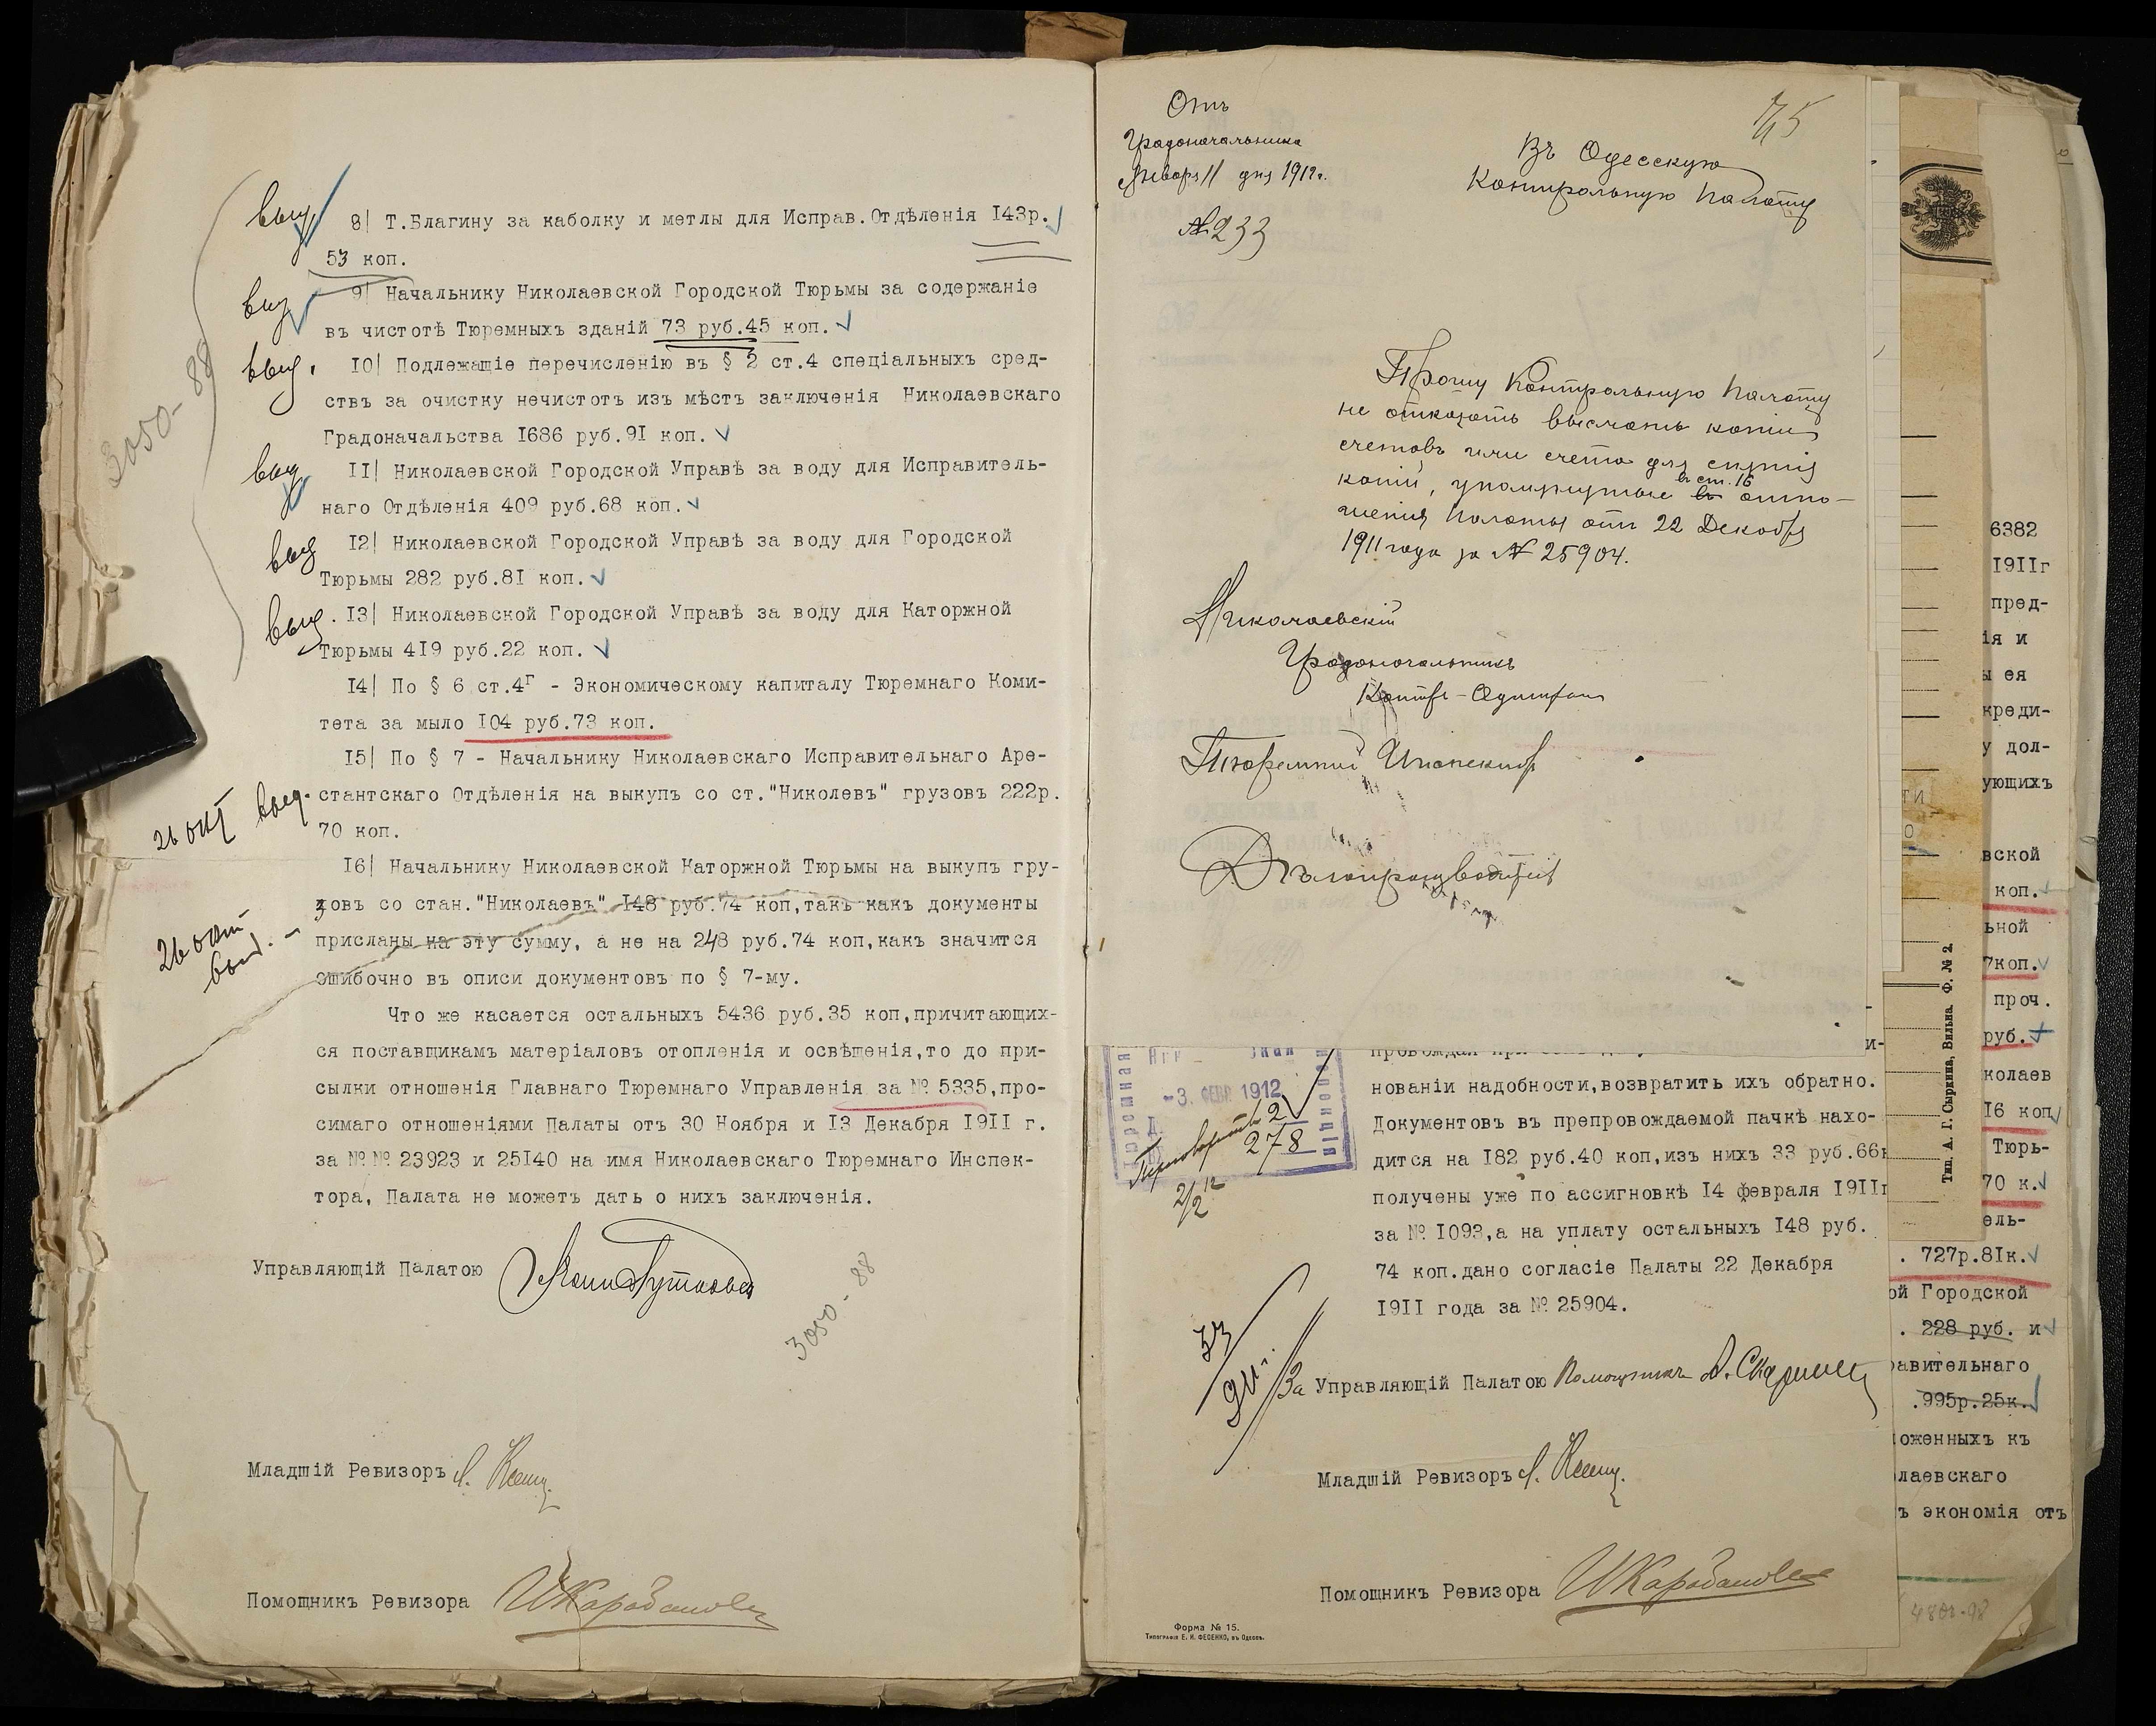 выд.
8| Т.Благину за каболку и метлы для Исправ.Отдѣленія 143р.
53 коп.
выд.
9| Начальнику Николаевской Городской Тюрьмы за содержаніе
въ чистотѣ Тюремныхъ зданій 73 руб.45 коп.
выд.
10| Подлежащіе перечисленію въ § 2 ст.4 спеціальныхъ сред-
ствъ за очистку нечистотъ изъ мѣстъ заключенія Николаевскаго
Градоначальства 1686 руб.91 коп.
3050-88
выд
11| Николаевской Городской Управѣ за воду для Исправитель-
наго Отдѣленія 409 руб.68 коп.
выд
12| Николаевской Городской Управѣ за воду для Городской
Тюрьмы 282 руб.81 коп.
выд.
13| Николаевской Городской Управѣ за воду для Каторжной
Тюрьмы 419 руб.22 коп.
14| По § 6 ст.4г - Экономическому капиталу Тюремнаго Коми-
тета за мыло 104 руб.73 коп.
15| По § 7 - Начальнику Николаевскаго Исправительнаго Аре-
26 окт выд.
стантскаго Отдѣленія на выкупъ со ст."Николевъ" грузовъ 222р.
70 коп.
16| Начальнику Николаевской Каторжной Тюрьмы на выкупъ гру-
зовъ со стан."Николаевъ" 148 руб.74 коп,такъ какъ документы
26 окт
выд. -
присланы на эту сумму, а не на 248 руб.74 коп,какъ значится
ошибочно въ описи документовъ по § 7-му.
Что же касается остальныхъ 5436 руб.35 коп,причитающих-
ся поставщикамъ матеріаловъ отопленія и освѣщенія,то до при-
сылки отношенія Главнаго Тюремнаго Управленія за № 5335,про-
симаго отношеніями Палаты отъ 30 Ноября и 13 Декабря 1911 г.
за №№ 23923 и 25140 на имя Николаевскаго Тюремнаго Инспек-
тора, Палата не можетъ дать о нихъ заключенія.
Управляющій Палатою
3050-88
Младшій Ревизоръ
Помощникъ Ревизора
Отъ
Градоначальника
Января 11 дня 1912 г.
№ 233
75
Въ Одесскую
Контрольную Палату
Прошу Контрольную Палату
не отказать выслать копіи
счетовъ или счета для снятія
копій, упомянутые въ отно-
въ ст. 16
шенія Палаты отъ 22 Декабря
1911 года за № 25904.
Николаевскій
Градоначальникъ
Контръ-Адмиралъ
Тюремный Инспекторъ
Дѣлопроизводитель
-3. ФЕВР. 1912
2
278
2/2 12
нованіи надобности,возвратить ихъ обратно.
Документовъ въ препровождаемой пачкѣ нахо-
дится на 182 руб.40 коп,изъ нихъ 33 руб.66к
получены уже по ассигновкѣ 14 февраля 1911г
за № 1093,а на уплату остальныхъ 148 руб.
74 коп.дано согласіе Палаты 22 Декабря
1911 года за № 25904.
За Управляющій Палатою Помощникъ
Младшій Ревизоръ
Помощникъ Ревизора
Форма № 15.
Типографія Е. И. ФЕСЕНКО, въ Одессѣ.
Тип. А. Г. Сыркина, Вильна. Ф. № 2.
6382
1911г
пред-
ія и
ы ея
креди-
у дол-
ующихъ
вской
коп.
ьной
7коп.
проч.
руб.
колаев
16 коп
Тюрь-
70 к.
ель-
. 727р.81к.
ой Городской
. 228 руб. и
равительнаго
.995р.25к.
оженныхъ къ
лаевскаго
ъ экономія отъ